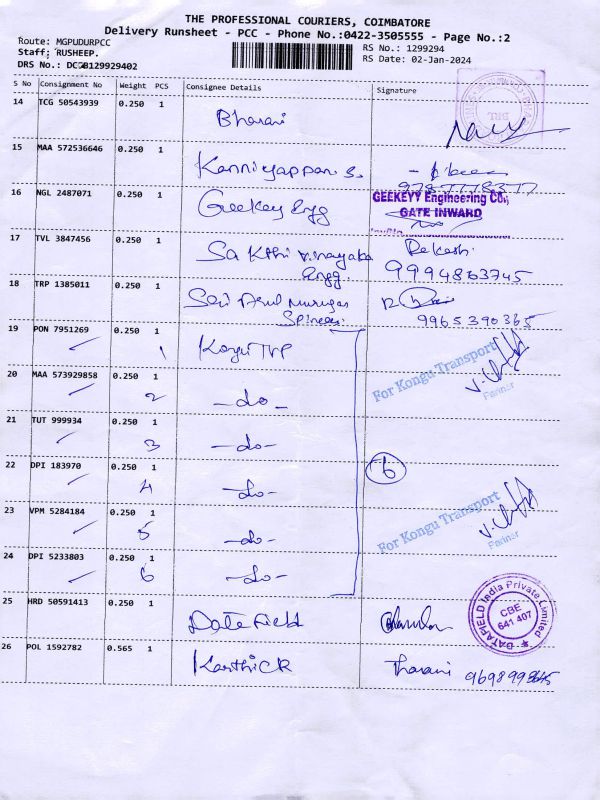 THE PROFESSIONAL COURIERS, COIMBATORE
Delivery Runsheet - PCC - Phone No.:0422-3505555 - Page No.:2
Route: MGPUDURPCC
RS No.: 1299294
Staff; RUSHEEP.
RS Date: 02-Jan-2024
DRS No.: DC2B129929402
S No Consignment No Weight PCS Consignee Details Signature
14 TCG 50543939 0.250 1 Bharani
15 MAA 572536646 0.250 1 Kanniyappan S.
16 NGL 2487071 0.250 1 Geekey Engg
GEEKEYY Engineering Co.,
GATE INWARD
17 TVL 3847456 0.250 1 Sakthi Vinayaka
Engg.
9994863745
18 TRP 1385011 0.250 1 Sri Arul Murugan
9965390365
19 PON 7951269 0.250 1 1 Kongu TVP
For Kongu Transport
Partner
20 MAA 573929858 0.250 1 2 -do-
21 TUT 999934 0.250 1 3 -do-
22 DPI 183970 0.250 1 4 -do-
6
23 VPM 5284184 0.250 1 5 -do-
For Kongu Transport
Partner
24 DPI 5233803 0.250 1 6 -do-
25 HRD 50591413 0.250 1 Datefield
DATAFIELD India Private Limited
CBE
641 407
26 POL 1592782 0.565 1 Karthick Tharani